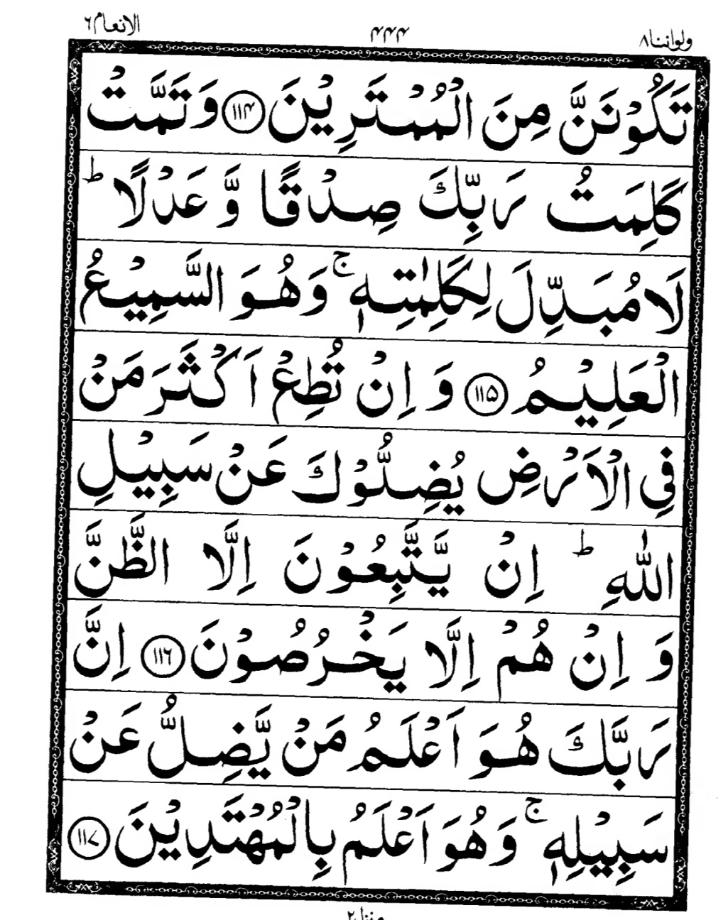 ولواننا۸ ۴۴۴ الانعام۶
تَكُوْنَنَّ مِنَ الْمُمْتَرِيْنَ ۝۱۱۴ وَتَمَّتْ
كَلِمَتُ رَبِّكَ صِدْقًا وَّ عَدْلًا ؕ
لَا مُبَدِّلَ لِكَلِمٰتِهٖ ۚ وَهُوَ السَّمِيْعُ
الْعَلِيْمُ ۝۱۱۵ وَ اِنْ تُطِعْ اَكْثَرَ مَنْ
فِي الْاَرْضِ يُضِلُّوْكَ عَنْ سَبِيْلِ
اللّٰهِ ؕ اِنْ يَّتَّبِعُوْنَ اِلَّا الظَّنَّ
وَ اِنْ هُمْ اِلَّا يَخْرُصُوْنَ ۝۱۱۶ اِنَّ
رَبَّكَ هُوَ اَعْلَمُ مَنْ يَّضِلُّ عَنْ
سَبِيْلِهٖ ۚ وَهُوَ اَعْلَمُ بِالْمُهْتَدِيْنَ ۝۱۱۷
منزل۲